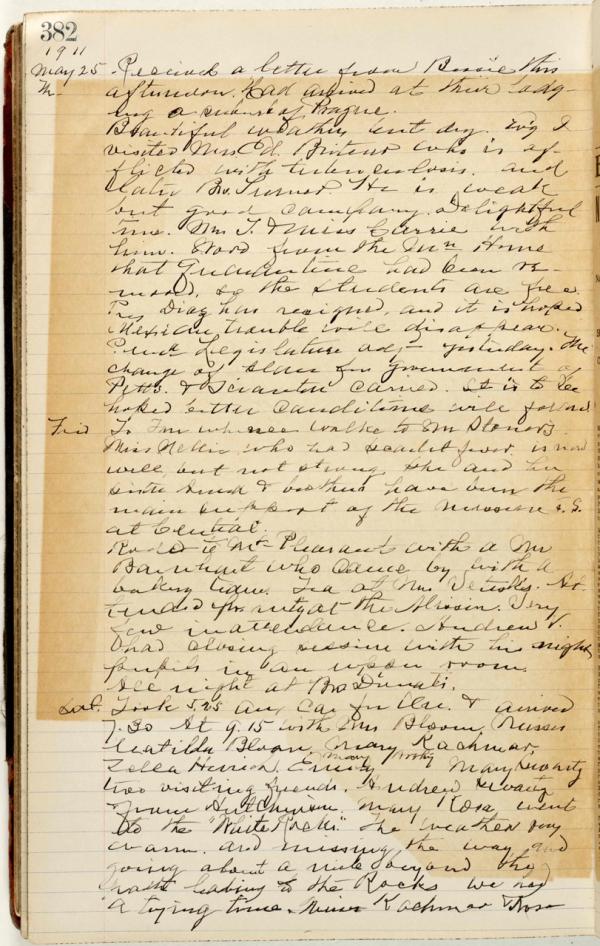 382
1911
May 25 Received a letter from Bessie this
Th- afternoon. Had arrived at their lodg-
ing a suburb of Prague.
Beautiful weather but dry. I
visited Mrs Ed. who is af-
flicted with tuberculosis. and
later Bro. Turner. He is weak
but good company. Delightful
time. Mrs T. & Miss Carrie with
him. Word from the Home
that Quarantine had been re-
moved, so the students are free.
Pres Diaz has resigned, and it is hoped
Mexican trouble will disappear.
Legislature adj- yesterday. The
change of for government of
Pitts. & Scranton carried. It is to be
hoped better conditions will follow
Frid To whence walked to Mr
Miss Nellie who had scarlet fever is now
well but not strong. She and her
sister & brother have been the
main support of the mission S. S.
at Central.
Rode to Mt Pleasant with a Mr
Barnhart who came by with a
bakery team. Tea at Mrs At-
tended at the Mission. Very
few in attendance. Andrew
had closing session with his night
pupils in an upper room.
All night at Bro
Sat. Took 5.25 car for & arrived
7.30 At 9.15 with Mrs Bloom, Misses
Matilda Bloom, Mary Kachmar,
Mary
Emily Mary
two visiting friends. Andrew
from Hutchinson. Mary Rosa went
to the "White Rocks". The weather very
warm. and missing the way and
going about a mile beyond the
path leading to the Rocks we had
a trying time. Misses Kachmar & Rosa